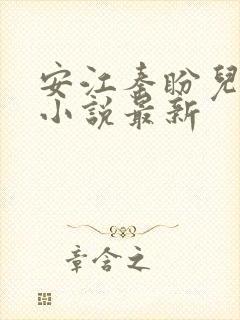 安江秦盼兒
小說最新
章含之